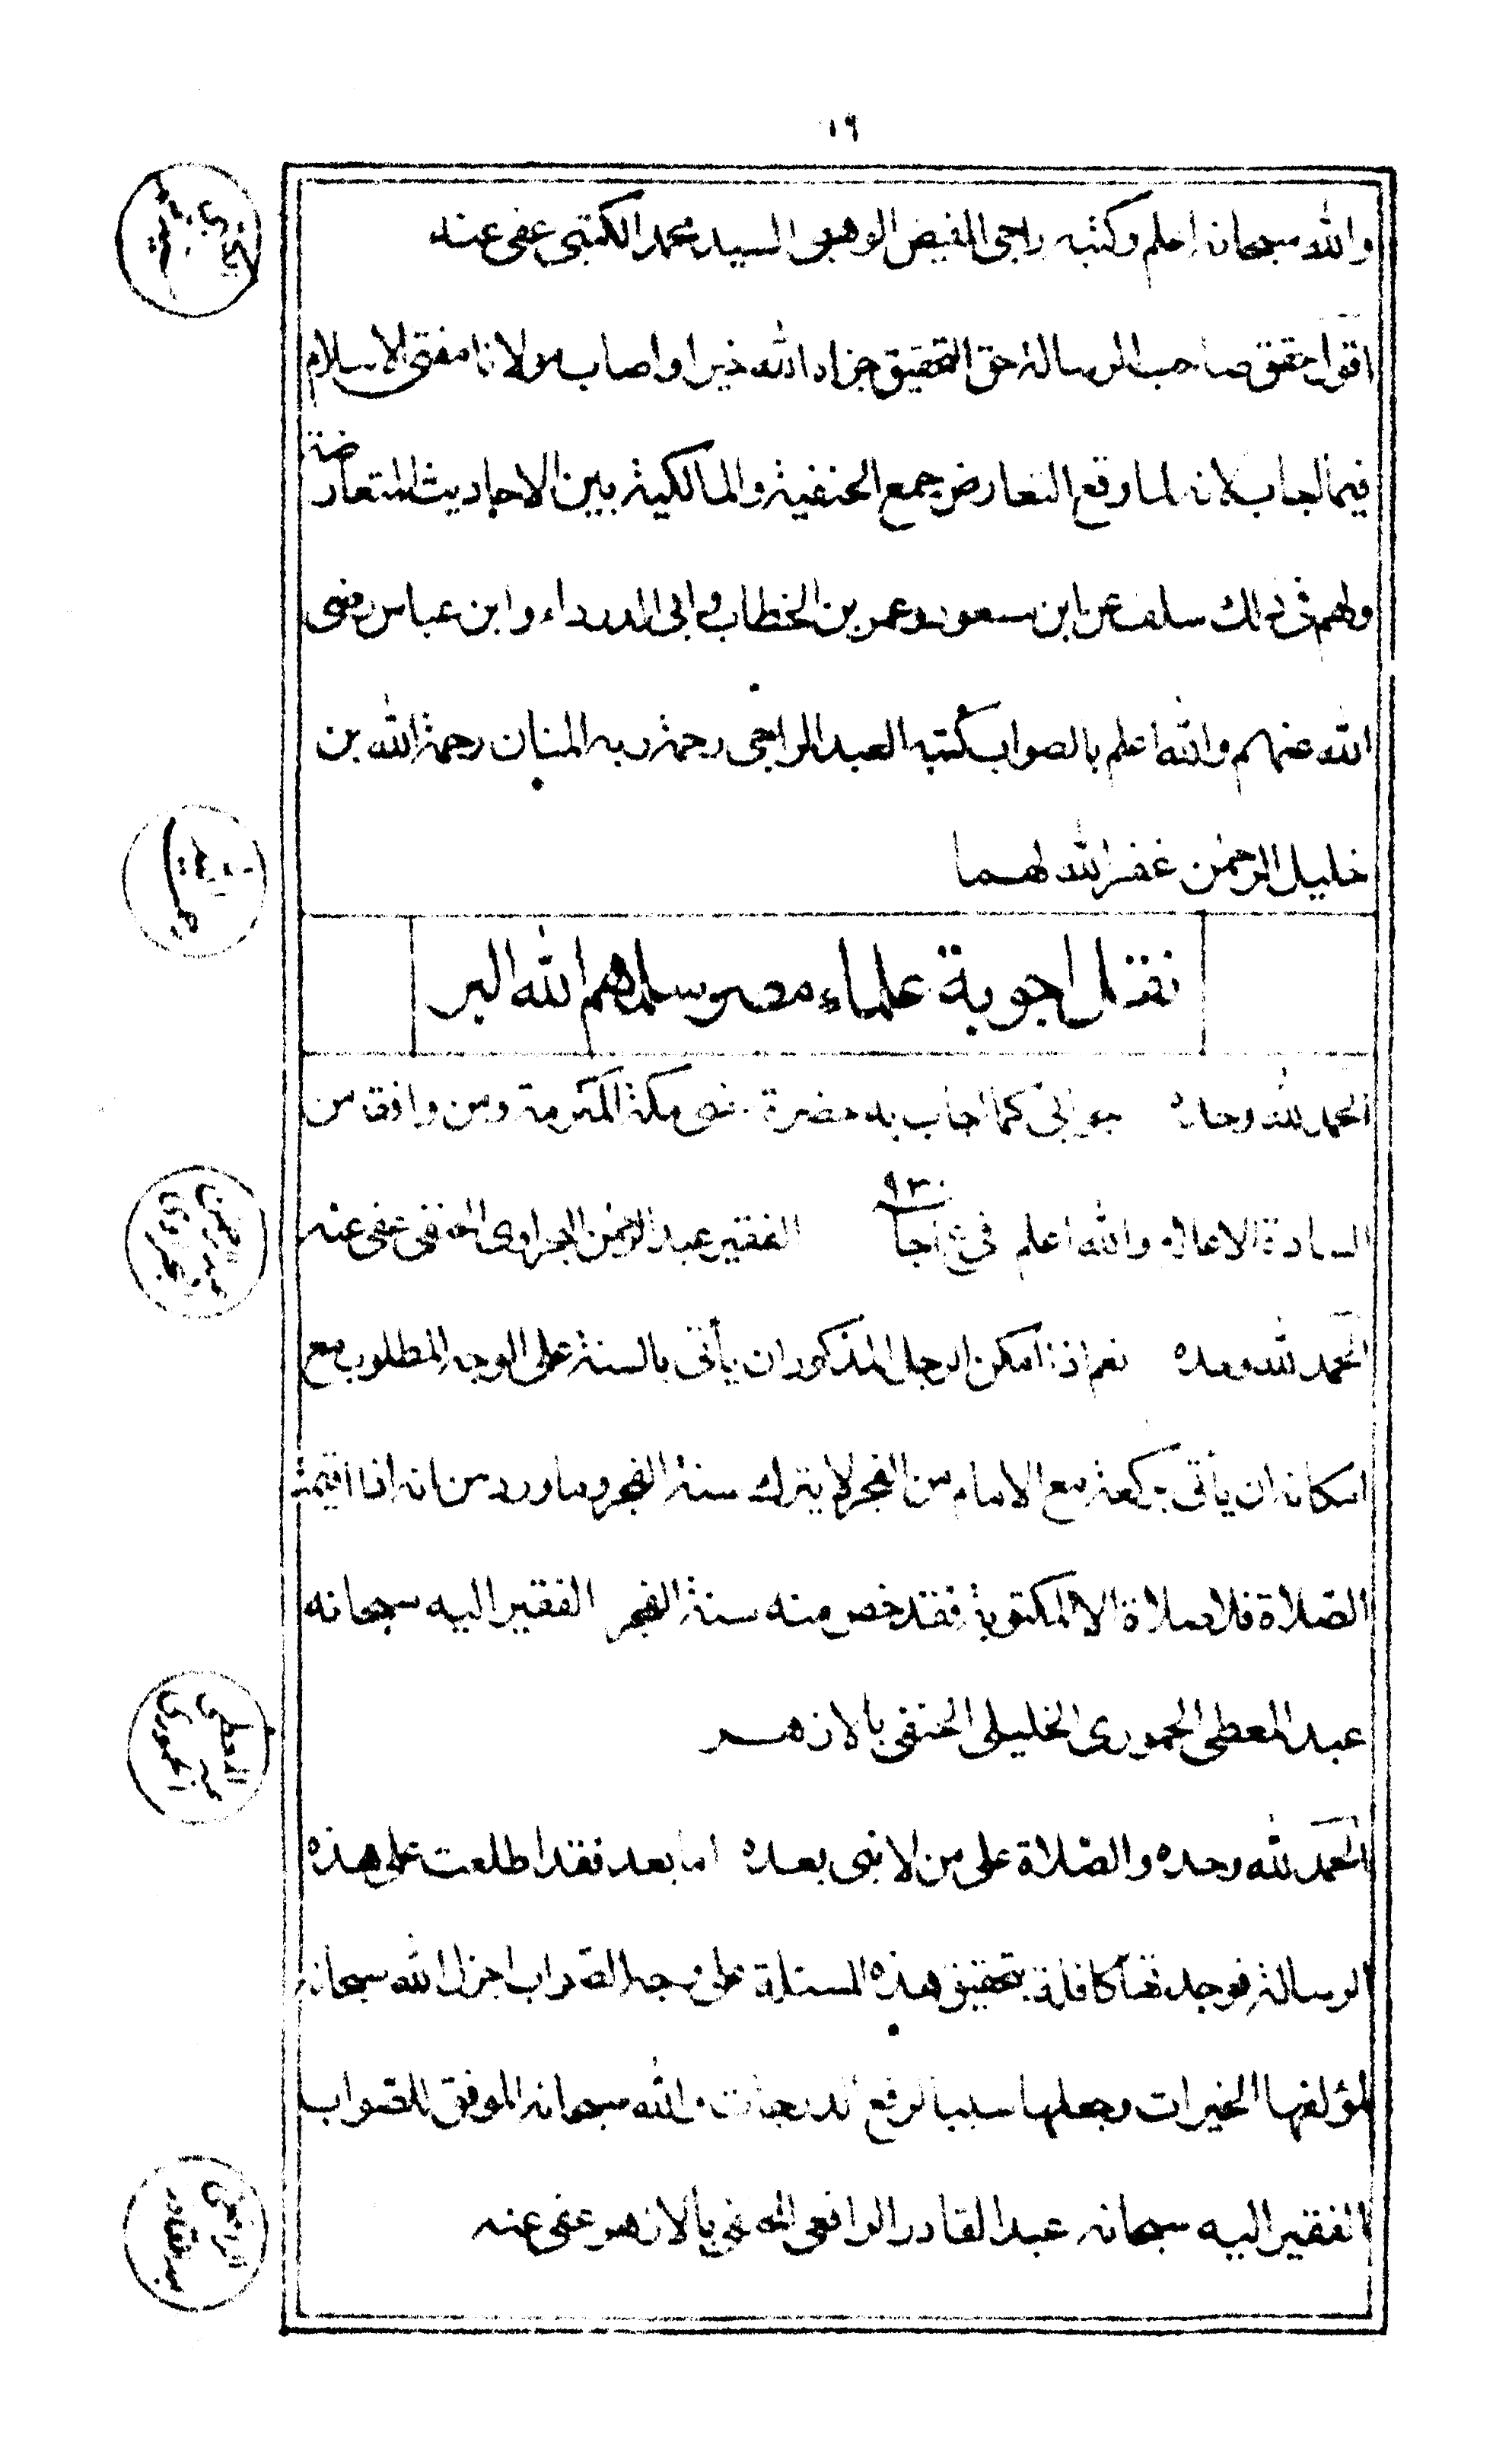 ١٦
والله سبحانه اعلم وكتبه راجى الفيض الوهبى السيد محمد الكتبى عفى عنه
اقول حقق صاحب الرسالة حق التحقيق جزاه الله خيرا واصاب مولانا مفتى الاسلام
فيما اجاب لانه لما وقع التعارض جمع الحنفية والمالكية بين الاحاديث المتعارضة
ولهم فى ذلك سلف عن ابن مسعود وعمر بن الخطاب وابى الدرداء وابن عباس رضى
الله عنهم والله اعلم بالصواب كتبه العبد الراجى رحمة ربه المنان رحمة الله بن
خليل الرحمن غفر الله لهما
نقل اجوبة علماء مصر سلمهم الله البر
الحمد لله وحده جوابى كما اجاب به حضرة مفتى مكة المكرمة ومن وافقه من
السادة الاعالى والله اعلم فى الفقير عبد الرحمن البحراوى الحنفى عفى عنه
الحمد لله وحده نعم اذا امكن الرجل المذكور ان يأتى بالسنة على الوجه المطلوب مع
امكانه ان يأتى بركعة مع الامام من الفجر لا يترك سنة الفجر وما ورد من انه اذا اقيمت
الصلاة فلا صلاة الا المكتوبة فقد خص منه سنة الفجر الفقير اليه سبحانه
عبد المعطى الحمورى الخليلى الحنفى بالازهر
الحمد لله وحده والصلاة على من لا نبى بعده اما بعد فقد اطلعت على هذه
الرسالة فوجدتها كافلة بتحقيق هذه المسئلة على وجه الصواب اجزل الله سبحانه
لمؤلفها الخيرات وجعلها سببا لرفع الدرجات والله سبحانه الموفق للصواب
الفقير اليه سبحانه عبد القادر الرافعى الحنفى بالازهر عفى عنه